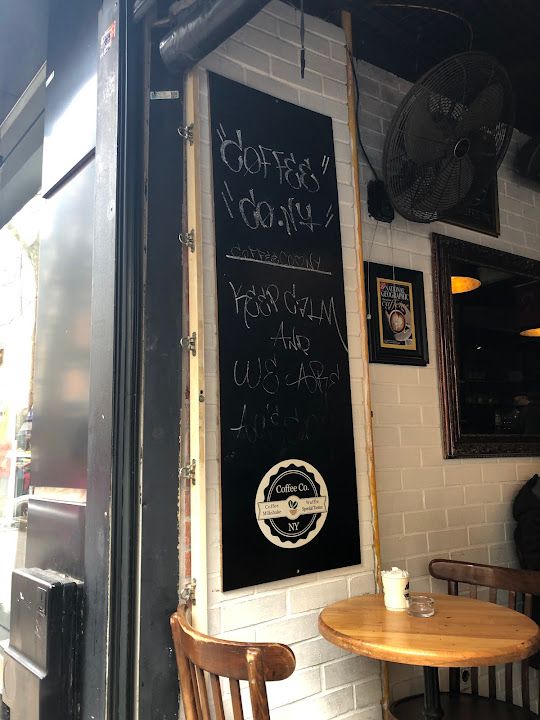 "COFFEE"
"CO.NY"
COFFEECO.NY
KEEP CALM
AND
WE ARE
Coffee Co.
Coffee
Milkshake
Waffle
Special Tastes
NY
NATIONAL
GEOGRAPHIC
Coffee